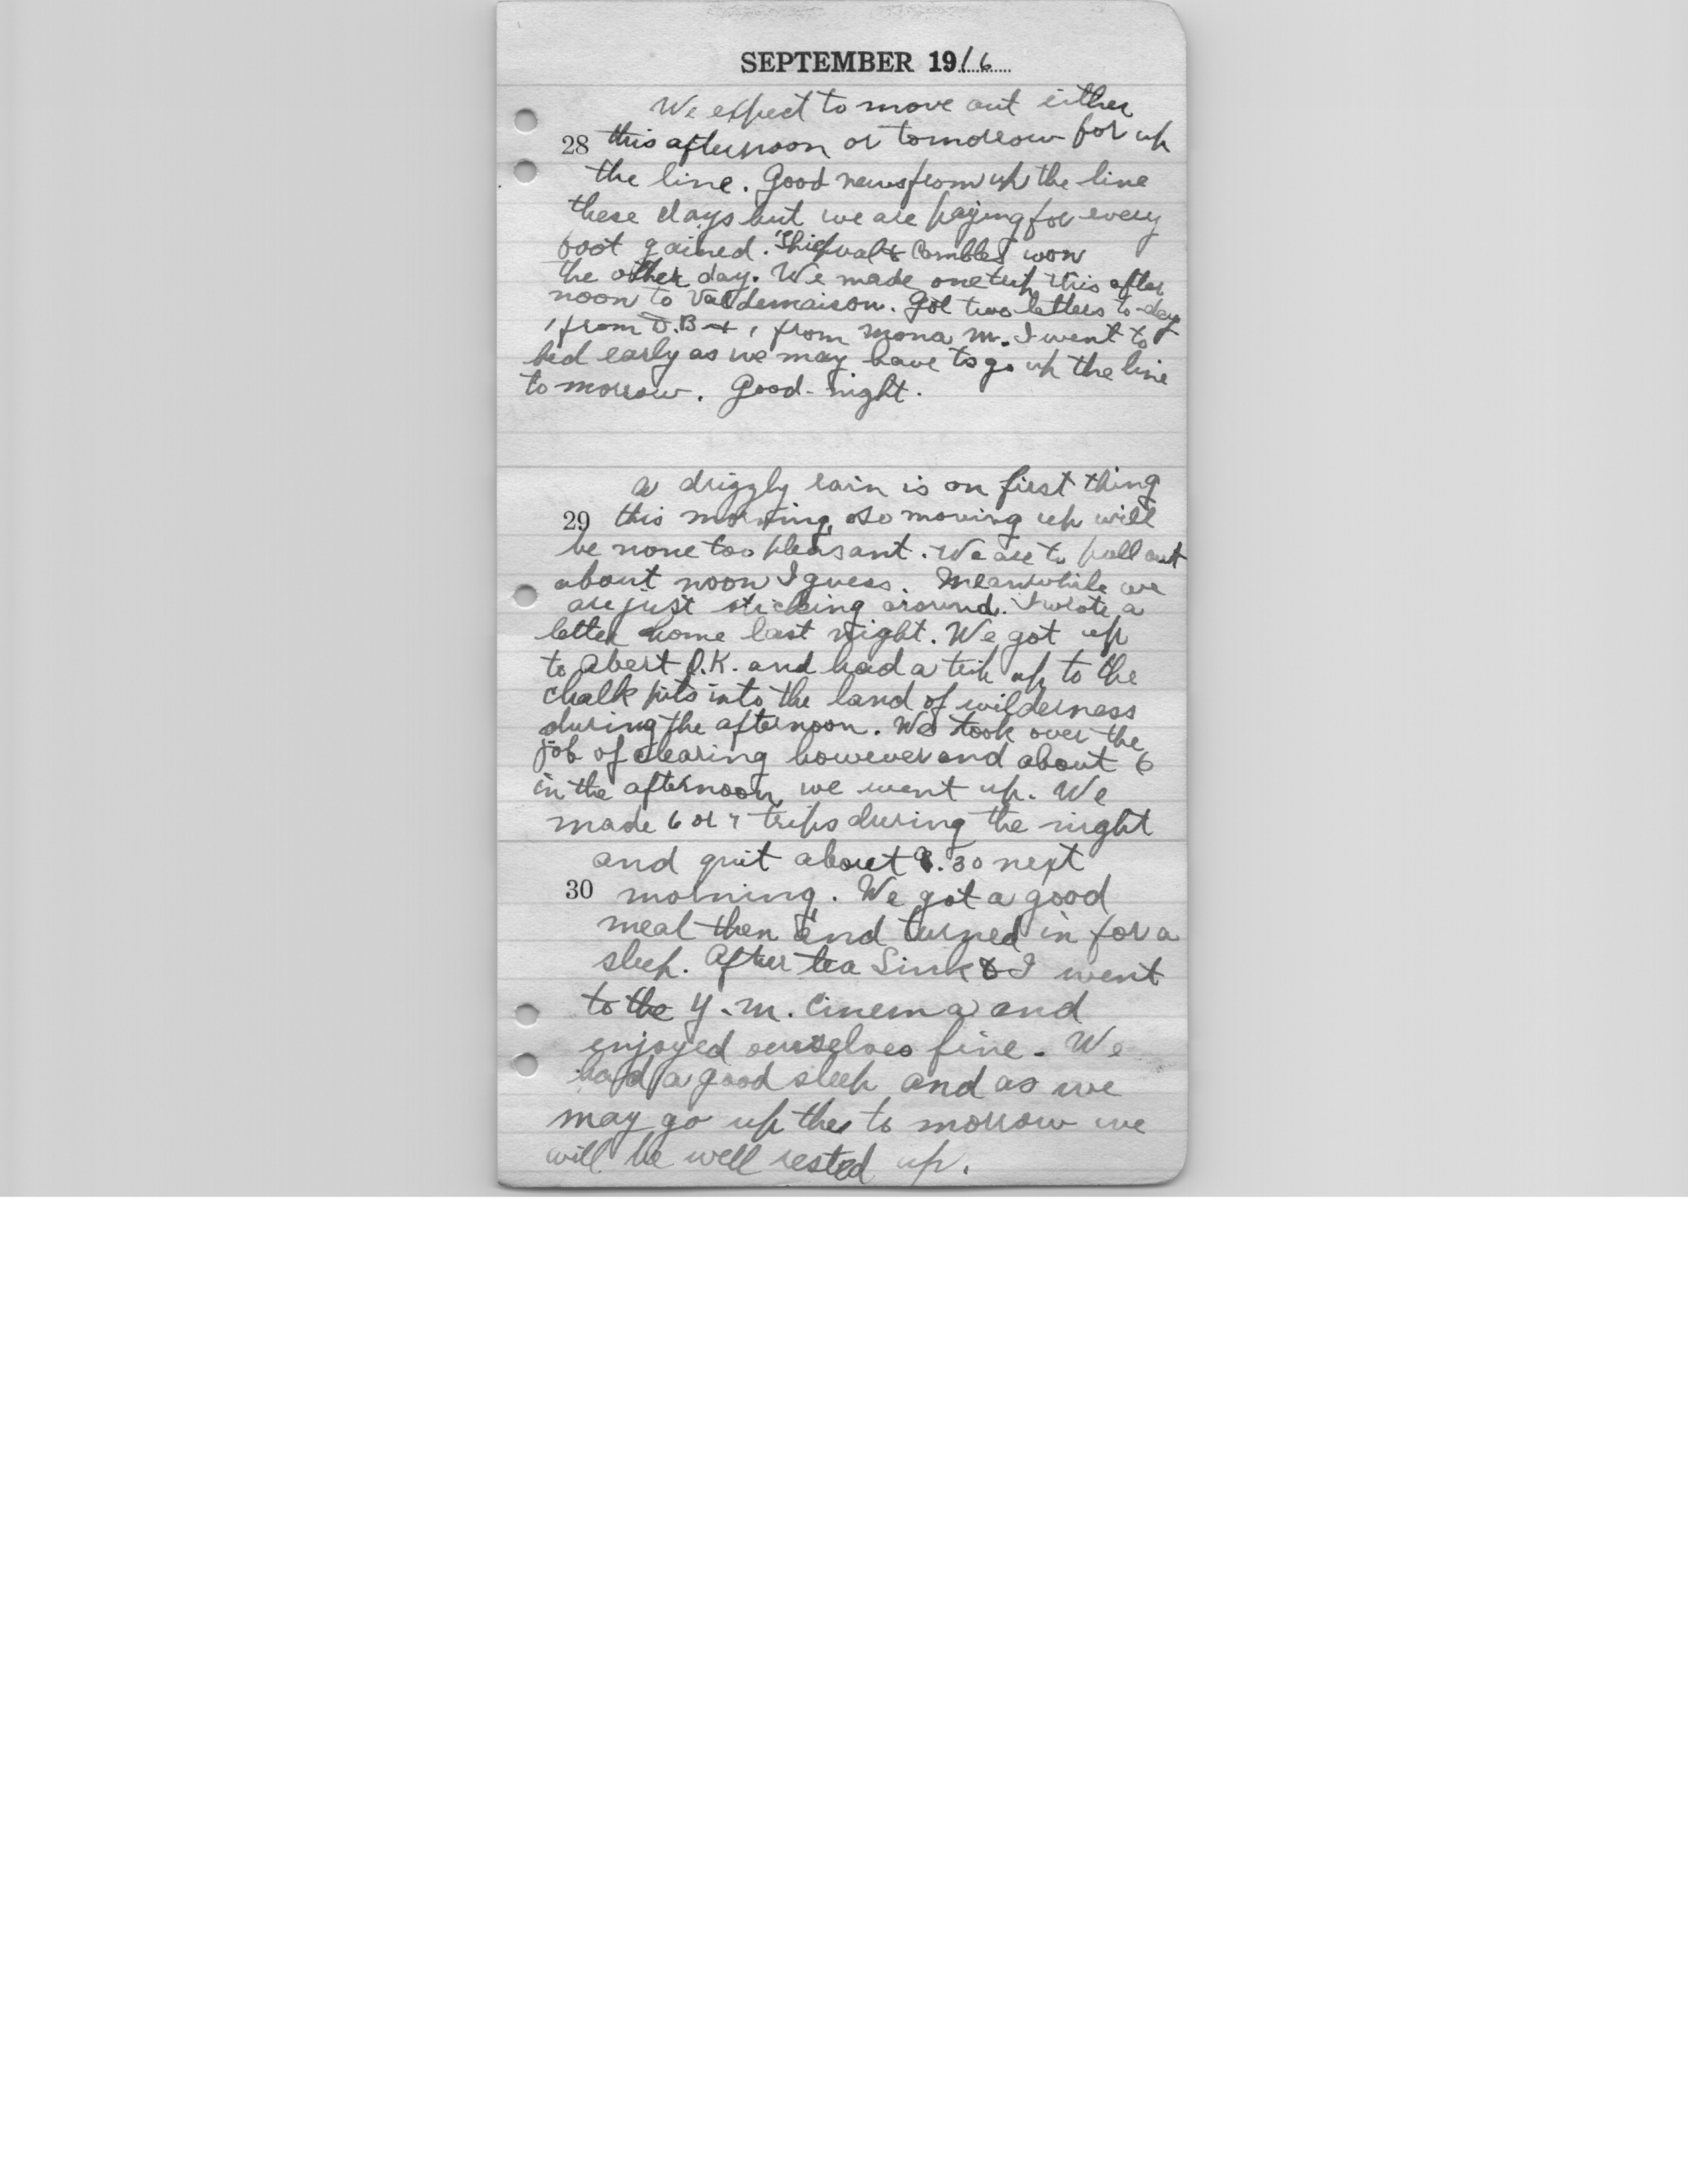 SEPTEMBER 1916
We expect to move out either
28 this afternoon or tomorrow for up
the line. Good news from up the line
these days but we are paying for every
foot gained. Thiepval & Combles won
the other day. We made one trip this after
noon to Valdemaison. Got two letters to-day
1 from D.B + 1 from Mona M. I went to
bed early as we may have to go up the line
to morrow. Good-night.
a drizzly rain is on first thing
29 this morning, so moving up will
be none too pleasant. We are to pull out
about noon I guess. Meanwhile we
are just sticking around. I wrote a
letter home last night. We got up
to Abert O.K. and had a trip up to the
chalk pits into the land of wilderness
during the afternoon. We took over the
job of clearing however and about 6
in the afternoon we went up. We
made 6 or 7 trips during the night
and quit about 8.30 next
30 morning. We got a good
meal then and turned in for a
sleep. After tea Sink & I went
to the Y.M. Cinema and
enjoyed ourselves fine. We
had a good sleep and as we
may go up the to morrow we
will be well rested up.